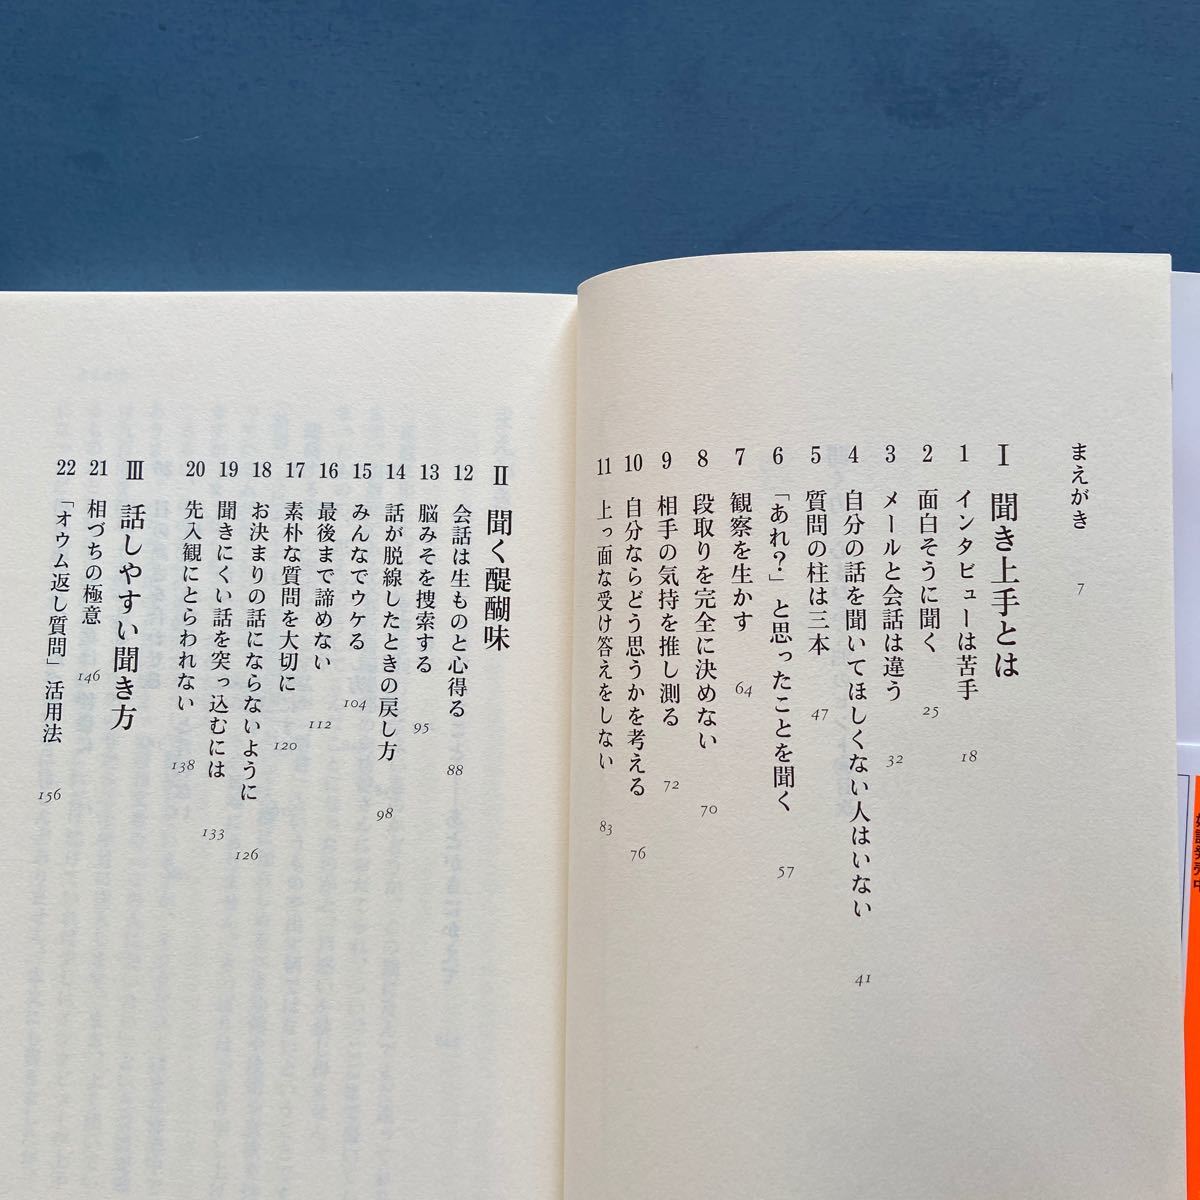 まえがき 7
I 聞き上手とは
1 インタビューは苦手 18
2 面白そうに聞く 25
3 メールと会話は違う 32
4 自分の話を聞いてほしくない人はいない 41
5 質問の柱は三本 47
6 「あれ？」と思ったことを聞く 57
7 観察を生かす 64
8 段取りを完全に決めない 70
9 相手の気持を推し測る 72
10 自分ならどう思うかを考える 76
11 上っ面な受け答えをしない 83
II 聞く醍醐味
12 会話は生ものと心得る 88
13 脳みそを捜索する 95
14 話が脱線したときの戻し方 98
15 みんなでウケる 104
16 最後まで諦めない 112
17 素朴な質問を大切に 120
18 お決まりの話にならないように 126
19 聞きにくい話を突っ込むには 133
20 先入観にとらわれない 138
III 話しやすい聞き方
21 相づちの極意 146
22 「オウム返し質問」活用法 156